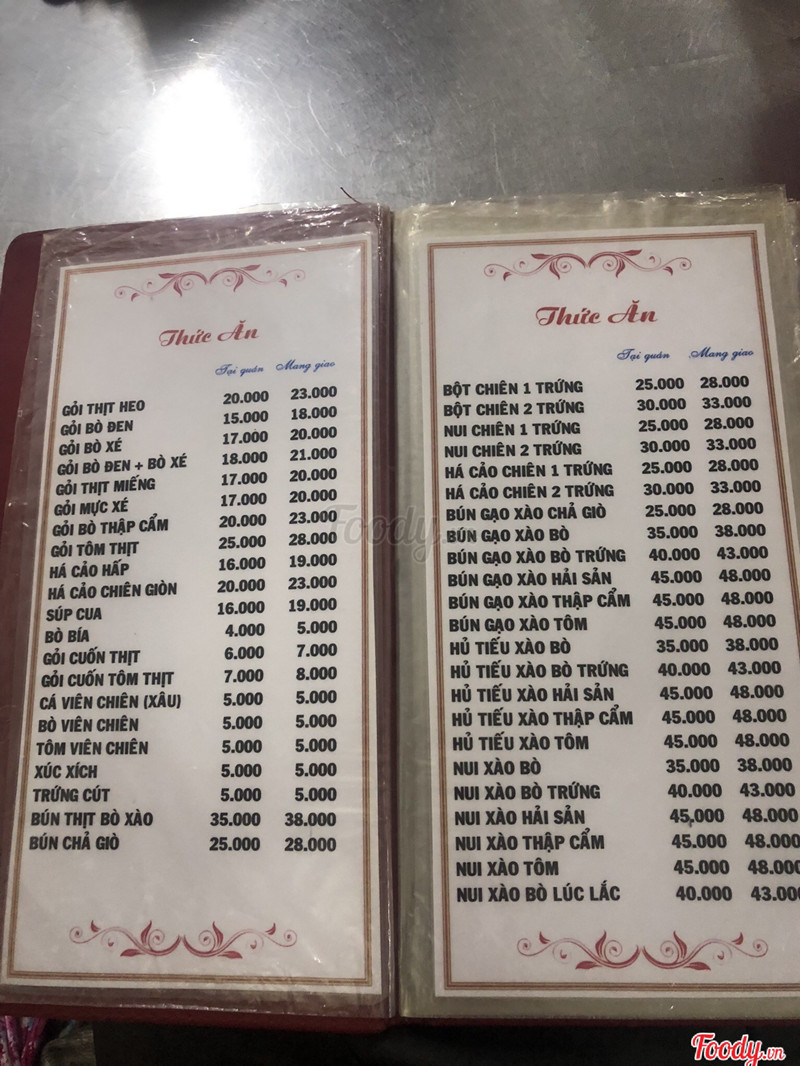 Thức Ăn
Tại quán Mang giao
GỎI THỊT HEO 20.000 23.000
GỎI BÒ ĐEN 15.000 18.000
GỎI BÒ XÉ 17.000 20.000
GỎI BÒ ĐEN + BÒ XÉ 18.000 21.000
GỎI THỊT MIẾNG 17.000 20.000
GỎI MỰC XÉ 17.000 20.000
GỎI BÒ THẬP CẨM 20.000 23.000
GỎI TÔM THỊT 25.000 28.000
HÁ CẢO HẤP 16.000 19.000
HÁ CẢO CHIÊN GIÒN 20.000 23.000
SÚP CUA 16.000 19.000
BÒ BÍA 4.000 5.000
GỎI CUỐN THỊT 6.000 7.000
GỎI CUỐN TÔM THỊT 7.000 8.000
CÁ VIÊN CHIÊN (XÂU) 5.000 5.000
BÒ VIÊN CHIÊN 5.000 5.000
TÔM VIÊN CHIÊN 5.000 5.000
XÚC XÍCH 5.000 5.000
TRỨNG CÚT 5.000 5.000
BÚN THỊT BÒ XÀO 35.000 38.000
BÚN CHẢ GIÒ 25.000 28.000
Thức Ăn
Tại quán Mang giao
BỘT CHIÊN 1 TRỨNG 25.000 28.000
BỘT CHIÊN 2 TRỨNG 30.000 33.000
NUI CHIÊN 1 TRỨNG 25.000 28.000
NUI CHIÊN 2 TRỨNG 30.000 33.000
HÁ CẢO CHIÊN 1 TRỨNG 25.000 28.000
HÁ CẢO CHIÊN 2 TRỨNG 30.000 33.000
BÚN GẠO XÀO CHẢ GIÒ 25.000 28.000
BÚN GẠO XÀO BÒ 35.000 38.000
BÚN GẠO XÀO BÒ TRỨNG 40.000 43.000
BÚN GẠO XÀO HẢI SẢN 45.000 48.000
BÚN GẠO XÀO THẬP CẨM 45.000 48.000
BÚN GẠO XÀO TÔM 45.000 48.000
HỦ TIẾU XÀO BÒ 35.000 38.000
HỦ TIẾU XÀO BÒ TRỨNG 40.000 43.000
HỦ TIẾU XÀO HẢI SẢN 45.000 48.000
HỦ TIẾU XÀO THẬP CẨM 45.000 48.000
HỦ TIẾU XÀO TÔM 45.000 48.000
NUI XÀO BÒ 35.000 38.000
NUI XÀO BÒ TRỨNG 40.000 43.000
NUI XÀO HẢI SẢN 45,000 48.000
NUI XÀO THẬP CẨM 45.000 48.000
NUI XÀO TÔM 45.000 48.000
NUI XÀO BÒ LÚC LẮC 40.000 43.000
Foody.vn
Foody.vn